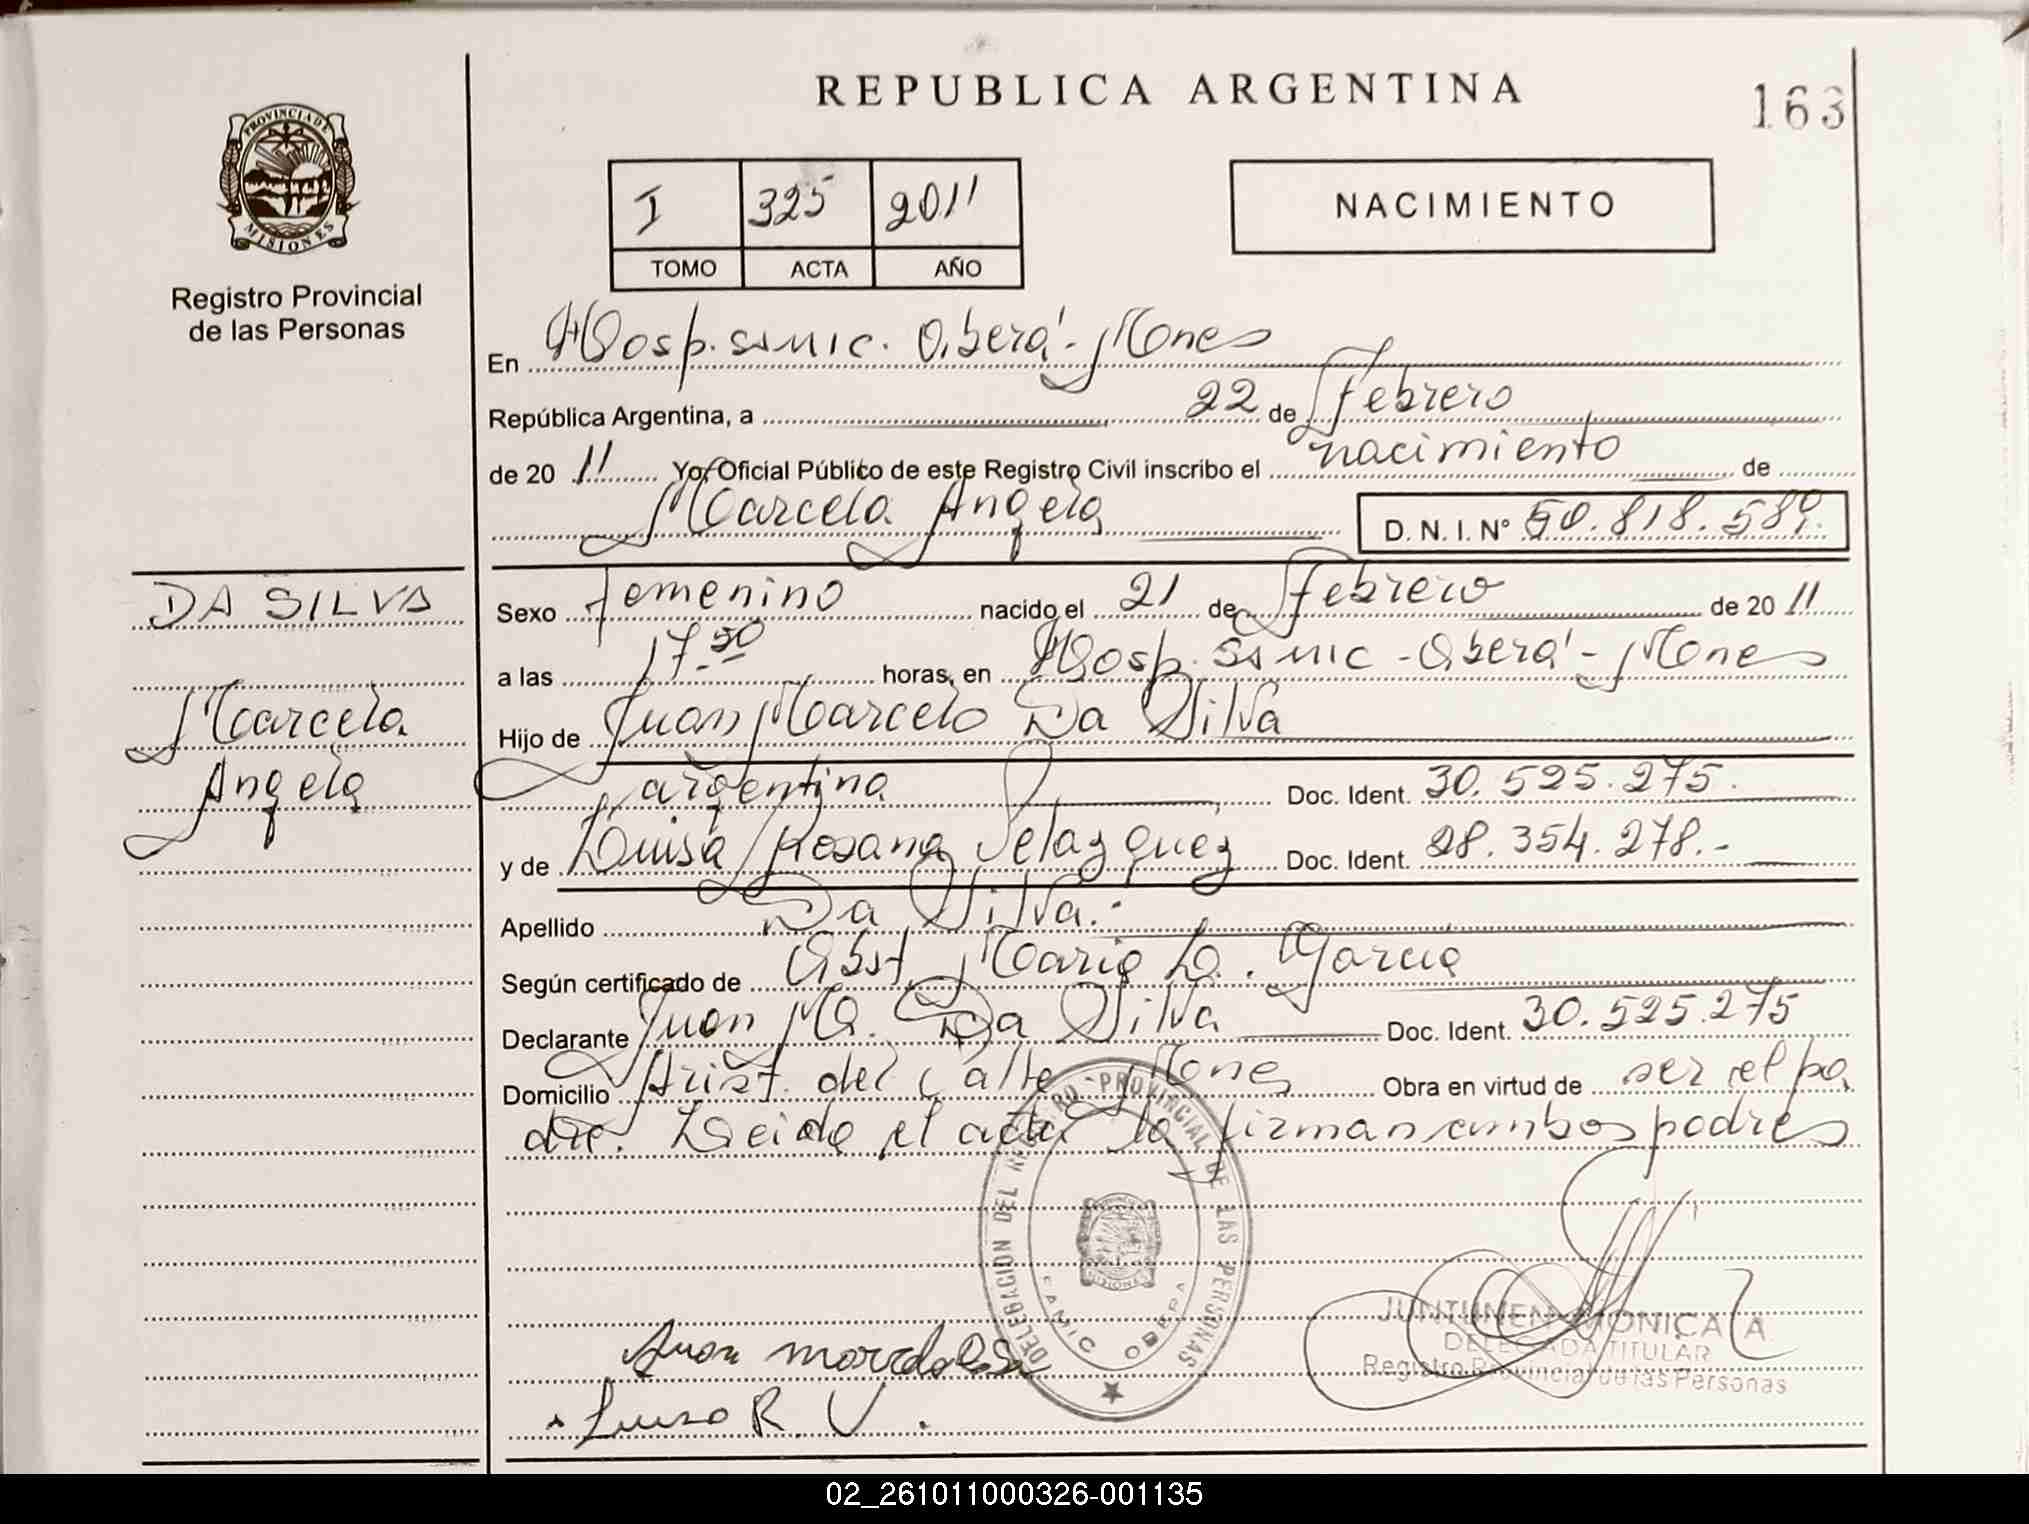 REPUBLICA ARGENTINA
163
PROVINCIA DE
MISIONES
Registro Provincial
de las Personas
I 325 2011
TOMO ACTA AÑO
NACIMIENTO
En Hosp. SAMIC. Oberá - Mones
República Argentina, a 22 de Febrero
de 20 11 Yo, Oficial Público de este Registro Civil inscribo el nacimiento de
Marcela Angela D. N. I. N° 50.818.589.
DA SILVA
Marcela
Angela
Sexo Femenino nacido el 21 de Febrero de 20 11
a las 17.30 horas, en Hosp. SAMIC - Oberá - Mones
Hijo de Juan Marcelo Da Silva
argentina Doc. Ident. 30.525.275.
y de Luisa Rosana Velazquez Doc. Ident. 28.354.278.-
Apellido Da Silva.-
Según certificado de Obst. Maria L. Garcia
Declarante Juan M. Da Silva Doc. Ident. 30.525.275
Domicilio Arist. del Valle Mones Obra en virtud de ser el pa
dre. Leida el acta la firman ambos padres
DELEGACION DEL REGISTRO PROVINCIAL DE LAS PERSONAS
SAMIC OBERA
MISIONES
JUNTUNEN MONICA A
DELEGADA TITULAR
Registro Provincial de las Personas
Juan
Luisa R. V.
02_261011000326-001135